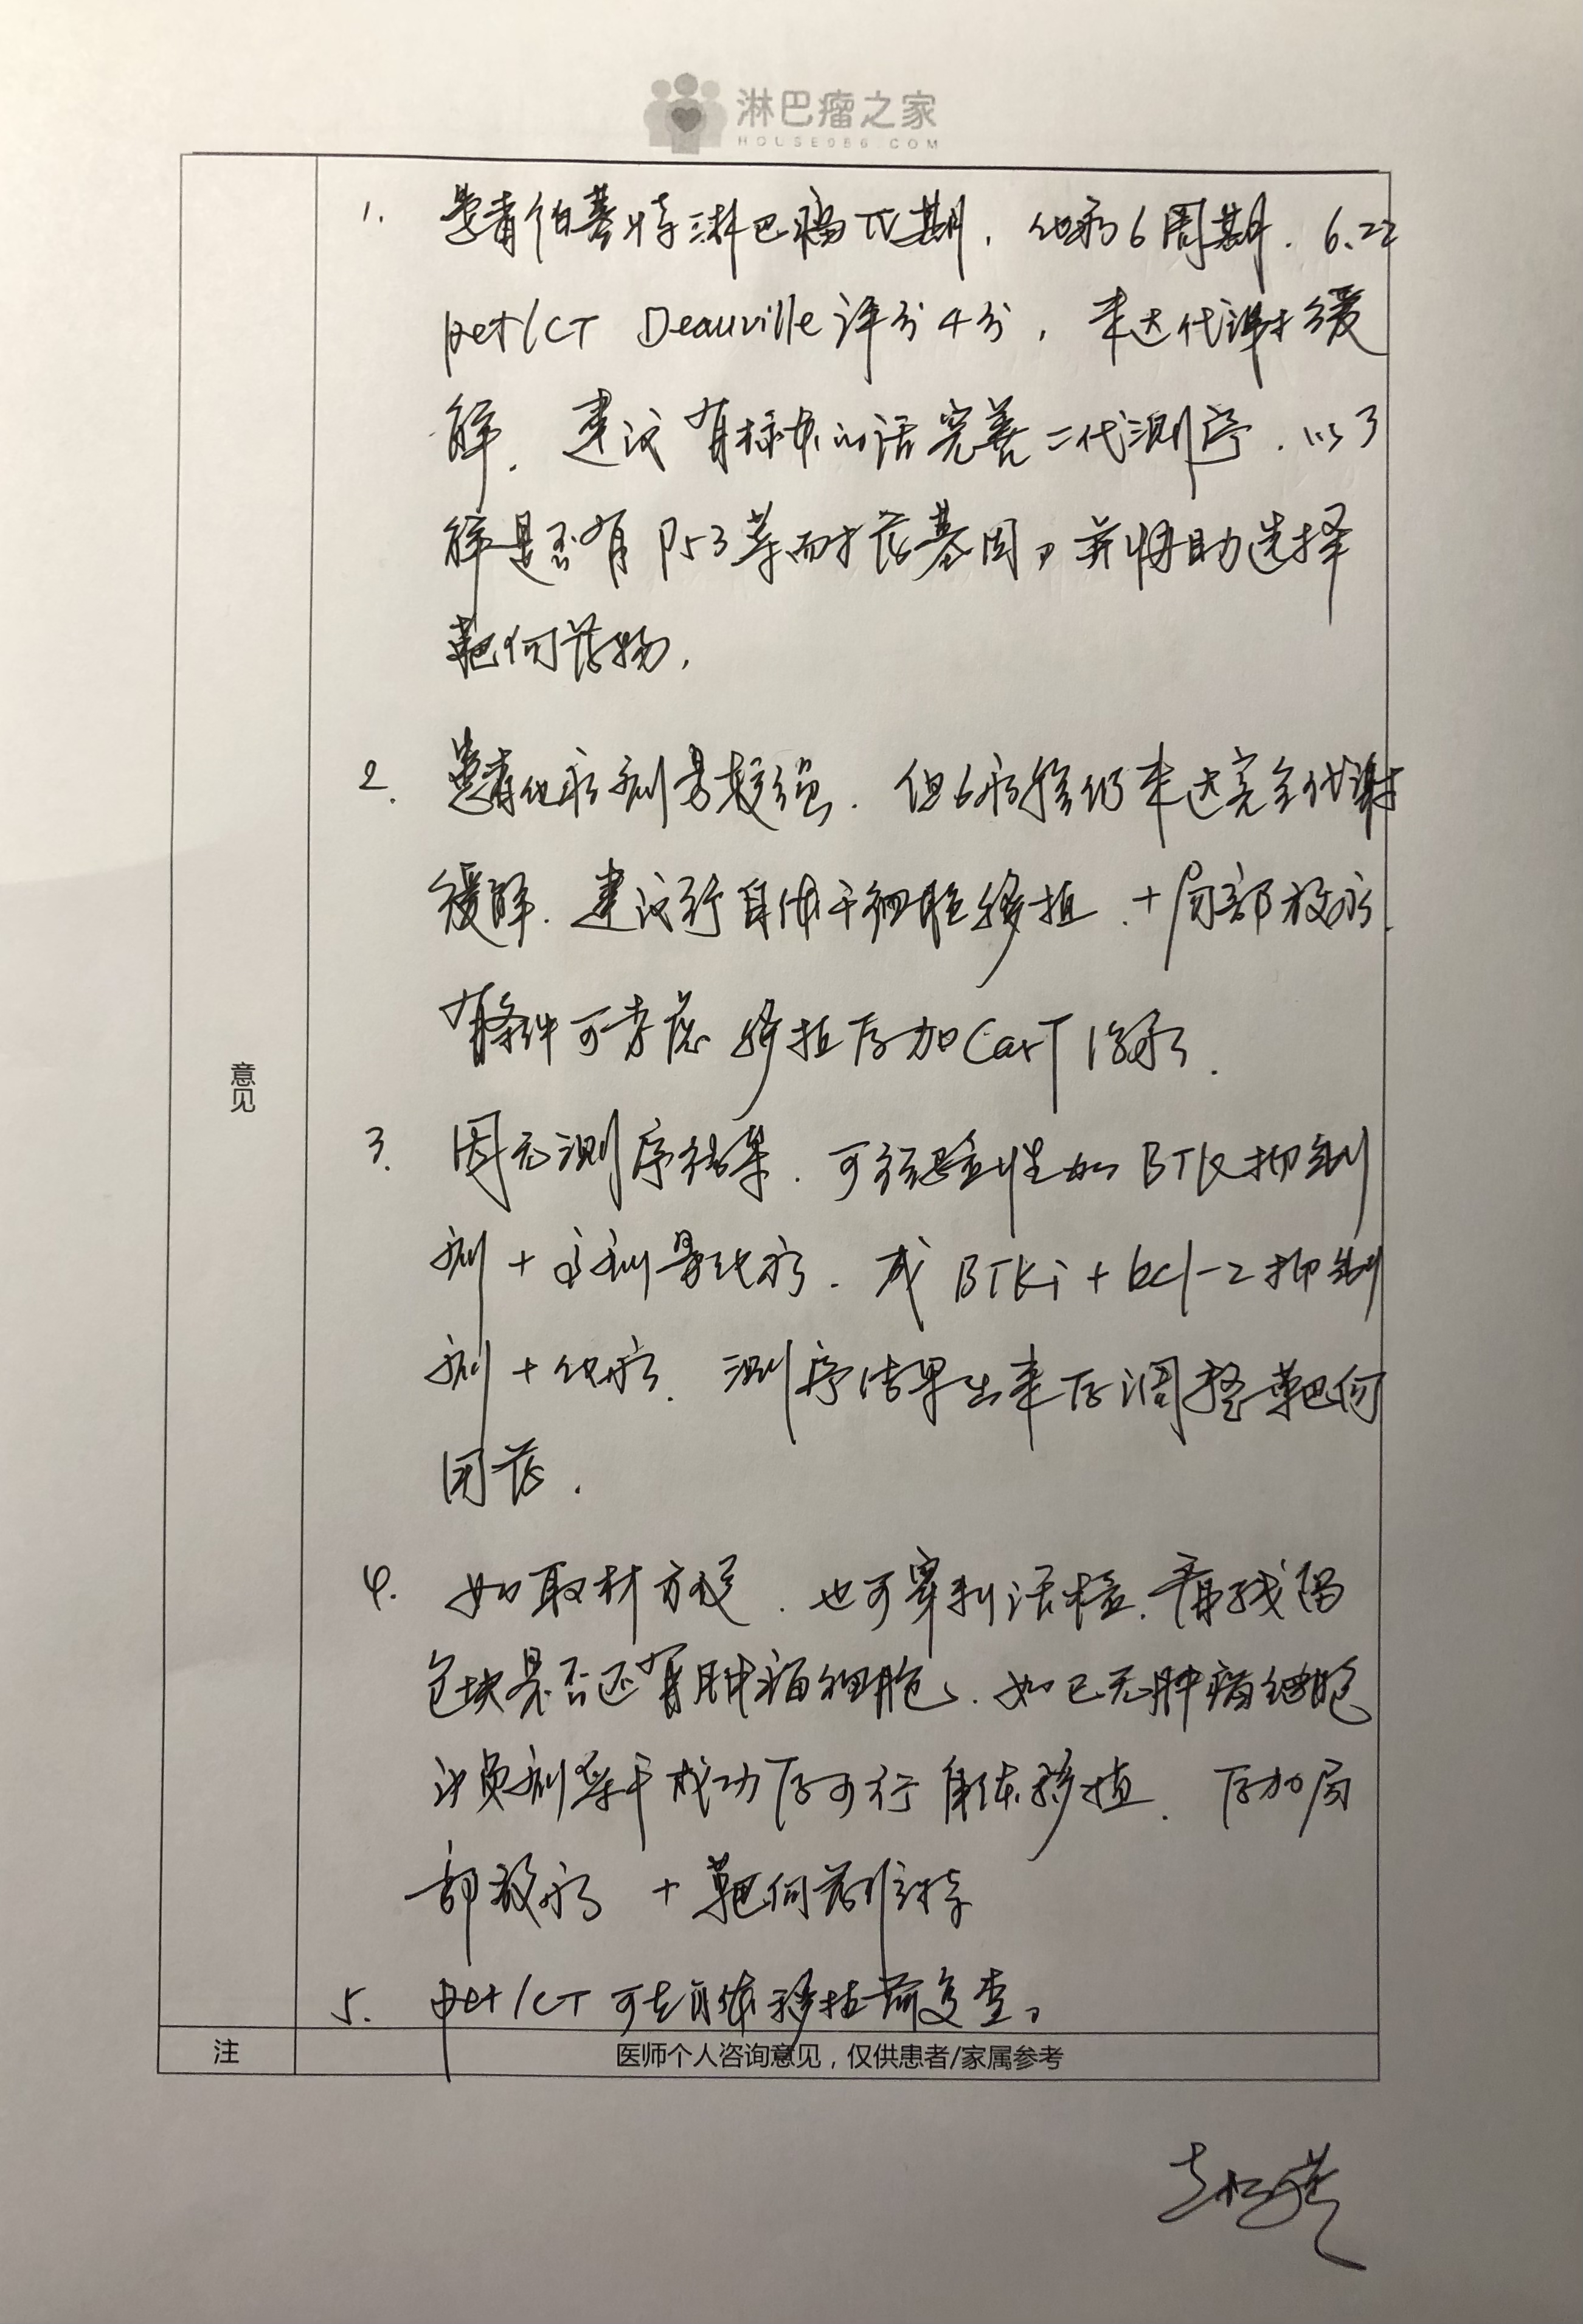 淋巴瘤之家
HOUSE086.COM
意见
1. 患者伯基特淋巴瘤IV期，化疗6周期，6.22
pet/CT Deauville评分4分，未达代谢缓
解，建议有标本的话完善二代测序，以了
解是否有P53等耐药基因，并帮助选择
靶向药物，
2. 患者化疗剂量较强，但6疗后仍未达完全代谢
缓解，建议行自体干细胞移植，+局部放疗，
有条件可考虑移植后加CarT治疗.
3. 因无测序结果，可经验性加BTK抑制
剂+剂量化疗，或BTKi+bcl-2抑制
剂+化疗，测序结果出来后调整靶向
用药.
4. 如取材方便，也可穿刺活检，看残留
包块是否还有肿瘤细胞，如已无肿瘤细胞
剂采干成功后可行自体移植，后加局
部放疗 +靶向药维持
5. pet/CT可在自体移植前复查。
注 医师个人咨询意见，仅供患者/家属参考